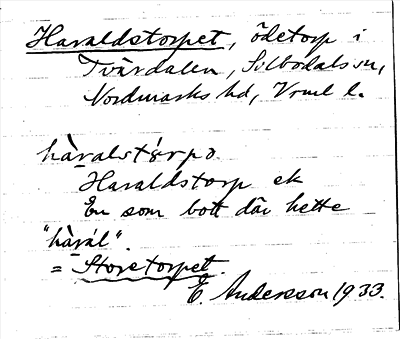 Haraldstorpet, ödetorp i
Tvärdalen, Silbodals sn,
Nordmarks hd, Vrml l.
hàralstǫrpə
Haraldstorp ek
En som bott där hette
"hàrál".
= Storetorpet.
E. Andersson 1933.